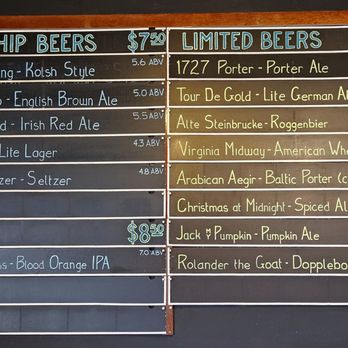 HIP BEERS $7.50
ng - Kolsh Style 5.6 ABV
- English Brown Ale 5.0 ABV
d - Irish Red Ale 5.5 ABV
Lite Lager 4.3 ABV
zer - Seltzer 4.8 ABV
$8.50
s - Blood Orange IPA 7.0 ABV
LIMITED BEERS
1727 Porter - Porter Ale
Tour De Gold - Lite German Al
Alte Steinbrucke - Roggenbier
Virginia Midway - American Whe
Arabican Aegir - Baltic Porter (c
Christmas at Midnight - Spiced Al
Jack & Pumpkin - Pumpkin Ale
Rolander the Goat - Dopplebo